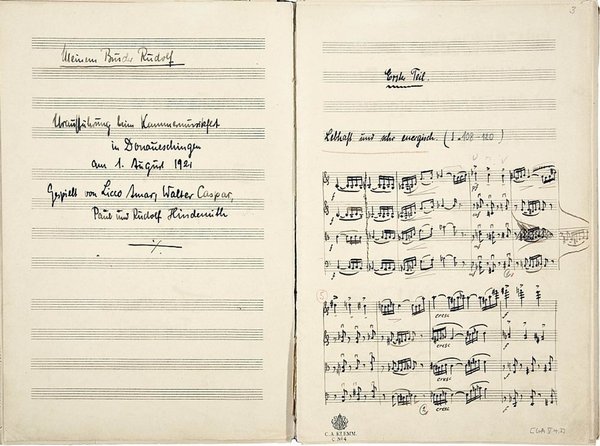 Meinem Bruder Rudolf
Uraufführung beim Kammermusikfest
in Donaueschingen
am 1. August 1921
Gespielt von Licco Amar, Walter Caspar,
Paul und Rudolf Hindemith
3
Erster Teil.
Lebhaft und sehr energisch. (♩ 108-120)
f
f
f
f
5
cresc
cresc
cresc
cresc
f
f
f
f
C. A. KLEMM.